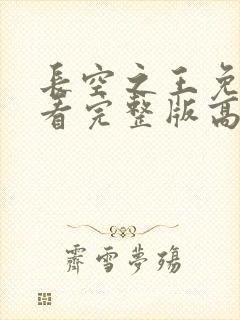 长空之王免
看完整版高
霽雪夢殤